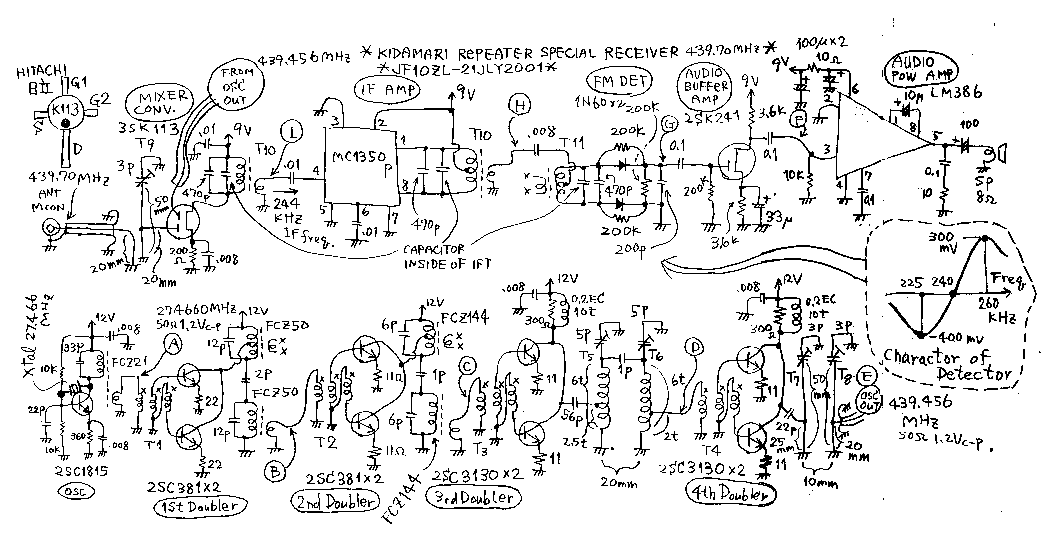 439.456MHz *KIDAMARI REPEATER SPECIAL RECEIVER 439.70MHz*
*JF1OZL-21JLY2001*
HITACHI
G1
G2
K113
D
MIXER
CONV.
3SK113
T9
3p
FROM
OSC
OUT
.01
9V
470p
T10
I
.01
244
KHz
IF freq.
439.70MHz
ANT
MCON
50
mm
20mm
20mm
200
Ω
.008
IF AMP
9V
3
2
1
4
MC1350
P
8
5
6
7
.01
470p
T10
CAPACITOR
INSIDE OF IFT
H
.008
T11
FM DET
1N60x2
200k
200k
470p
200k
200p
G
0.1
AUDIO
BUFFER
AMP
2SK241
9V
3.6k
0.1
200k
3.6k
33μ
100μx2
9V
10Ω
F
10k
2
6
3
4
7
0.1
AUDIO
POW AMP
10μ
LM386
1
8
5
100
0.1
10
SP
8Ω
300
mV
225
240
Freq
260
KHz
-400mV
Charactor of
Detector
Xtal 27.466
MHz
12V
.008
33p
10k
FCZ21
22p
10k
360
.008
2SC1815
OSC
A
27.4660MHz
50Ω1.2Vc-p
12V
FCZ50
12p
2p
FCZ50
12p
T1
22
22
2SC381x2
1st Doubler
B
T2
12V
FCZ144
6p
11Ω
1p
6p
11Ω
2SC381x2
2nd Doubler
FCZ144
C
T3
.008
12V
300Ω
0.2EC
10t
11
11
2SC3130x2
3rd Doubler
5p
T5
5p
T6
1p
6t
56p
2.5t
20mm
D
6t
2t
T4
.008
12V
300Ω
0.2EC
10t
11
11
2SC3130x2
4th Doubler
3p
T7
3p
T8
50
mm
22p
25
mm
20
mm
10mm
E
OSC
OUT
439.456
MHz
50Ω 1.2Vc-p.